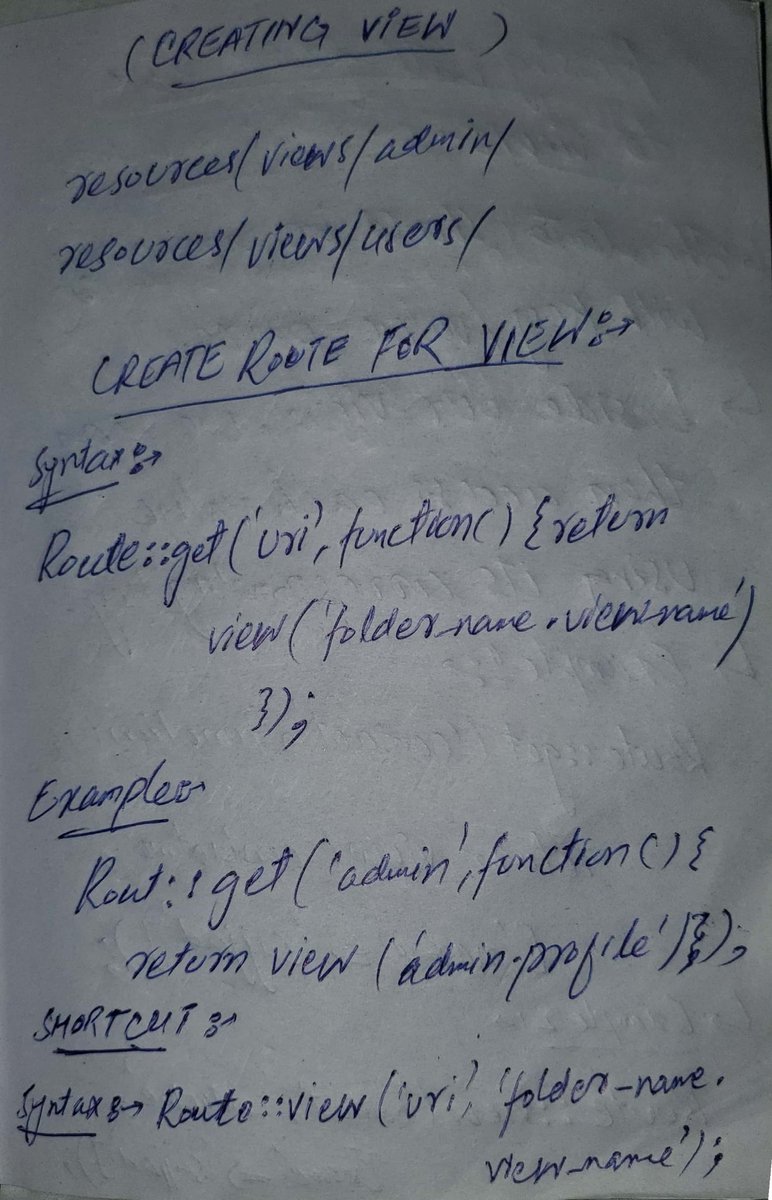 (CREATING VIEW)
resources/views/admin/
resources/views/users/
CREATE ROUTE FOR VIEW:→
Syntax:→
Route::get('uri', function() {return
view('folder_name.view_name')
});
Example:-
Rout::get('admin', function() {
return view ('admin.profile')};);
SHORTCUT:-
Syntax:→ Route::view('uri', 'folder_name.
view_name');